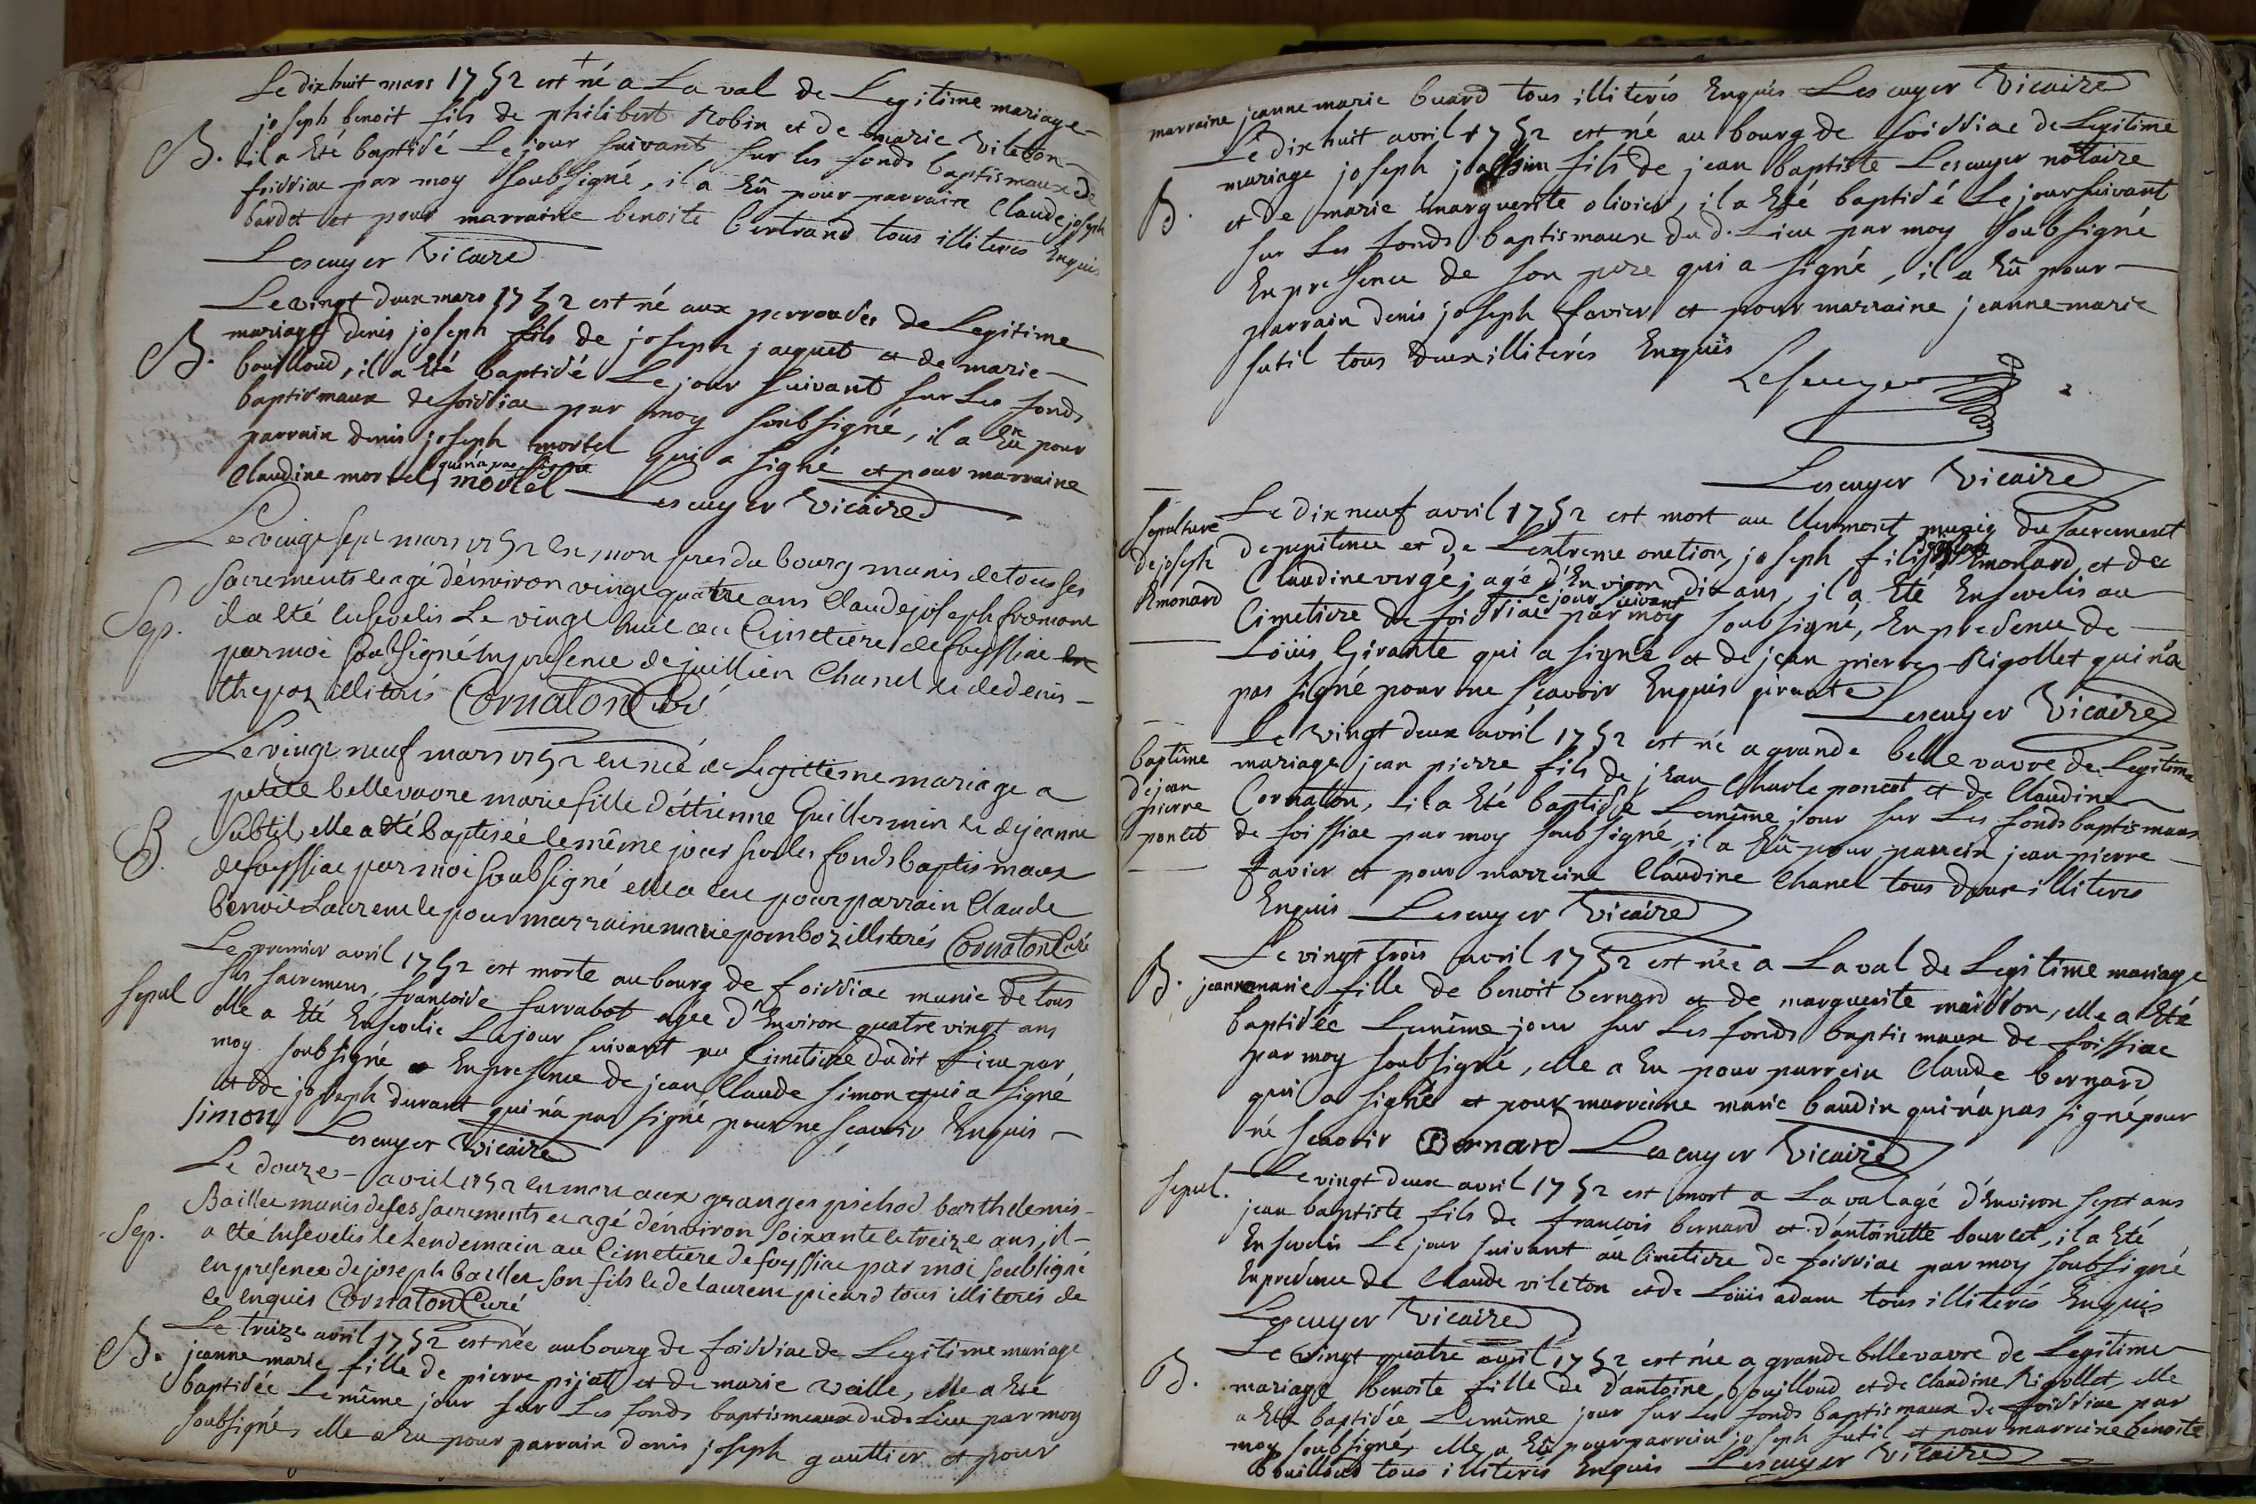 Le dix huit mars 1752 est né a La val de Legitime mariage
joseph benoit fils de philibert Robin et de marie vileton
B. il a Eté baptisé Le jour suivant sur les fonds baptismaux de
foissiac par moy soubsigné, il a Eû pour parrain Claude joseph
bardet et pour marraine benoite Bertrand tous illiterés Enquis
Lescuyer Vicaire
Le vingt deux mars 1752 est né aux perrouses de Legitime
mariage denis joseph fils de joseph jacquet et de marie
B. bouilloud, il a Eté baptisé Le jour suivant sur Les fonds
baptismaux de foissiac par moy soubsigné, il a Eû pour
parrain denis joseph mortel qui a signé et pour marraine
Claudine mortel, qui n'a pas signé mortel Lescuyer Vicaire
Le vingt sept mars 1752 est mort pres du bourg munis de tous ses
sacrements et agé d'environ vingt quatre ans Claude joseph fromont
Sep. il a eté ensevelis Le vingt huit au Cimetiere de foyssiac
par moi soubsigné en presence de juillien Chanel et de denis
illiterés Cornaton Curé
Le vingt neuf mars 1752 est née de Legittime mariage a
petite bellevavre marie fille d'éttienne Guillermin et de jeanne
B. Subtil, elle a été baptisée le même jour sur les fonds baptismaux
de foyssiac par moi soubsigné elle a eu pour parrain Claude
benoit Laurent et pour marraine marie pomboz illiterés Cornaton Curé
Le premier avril 1752 est morte au bourg de foissiac munie de tous
sepul ses sacremens, francoise farrabot agée d'Environ quatre vingt ans
elle a Eté Ensevelie Le jour suivant au Cimetiere dudit Lieu par
moy soubsigné En presence de jean Claude simon qui a signé
et de joseph durant qui n'a pas signé pour ne sçavoir Enquis
simon Lescuyer Vicaire
Le douze avril 1752 est mort aux granges pichod barthelemis
Baillet munis de ses sacrements et agé d'environ soixante et treize ans, il
Sep. a été ensevelis le Lendemain au Cimetiere de foyssiac par moi soubsigné
en presence de joseph baillet son fils et de laurent picard tous illiterés de
ce enquis Cornaton Curé
Le treize avril 1752 est née au bourg de foissiac de Legitime mariage
B. jeanne marie fille de pierre pijat et de marie veille, elle a Eté
baptisée Le même jour sur Les fonds baptismaux dudt Lieu par moy
soubsigné, elle a Eu pour parrain denis joseph gauttier et pour
marraine jeanne marie buard tous illiterés Enquis Lescuyer Vicaire
Le dix huit avril 1752 est né au bourg de foissiac de Legitime
mariage joseph joachim fils de jean baptiste Lescuyer notaire
B. et de marie marguerite olivier, il a Eté baptisé Le jour suivant
sur Les fonds baptismaux du d. Lieu par moy soubsigné
En presence de son pere qui a signé, il a Eû pour
parrain denis joseph favier et pour marraine jeanne marie
sutil tous deux illiterés Enquis
Lescuyer
Lescuyer Vicaire
Sepulture de joseph Emonard
Le dix neuf avril 1752 est mort au Clermont muni du sacrement
de penitence et de L'extreme onction, joseph fils Emonard et de
Claudine vergé, agé d'Environ dix ans, il a Eté Ensevelis au
Cimetiere de foissiac le jour suivant par moy soubsigné, En presence de
Loüis Girante qui a signé et de jean pierre Rigollet qui n'a
pas signé pour ne sçavoir Enquis girante Lescuyer Vicaire
baptême de jean pierre poncet
Le vingt deux avril 1752 est né a grande bellevavre de Legitime
mariage jean pierre fils de jean Charle poncet et de Claudine
Cornaton, il a Eté baptisé Le même jour sur Les fonds baptismaux
de foissiac par moy soubsigné, il a Eû pour parrein jean pierre
favier et pour marreine Claudine Chanel tous deux illiterés
Enquis Lescuyer Vicaire
Le vingt trois avril 1752 est née a Laval de Legitime mariage
B. jeanne marie fille de benoit bernard et de marguerite maisson, elle a Eté
baptisée Le même jour sur Les fonds baptismaux de foissiac
par moy soubsigné, elle a Eu pour parrein Claude bernard
qui a signé et pour marreine marie baudin qui n'a pas signé pour
ne sçavoir Bernard Lescuyer Vicaire
sepul. Le vingt deux avril 1752 est mort a La val agé d'Environ sept ans
jean baptiste fils de francois bernard et d'antoinette bourcet, il a Eté
Ensevelis Le jour suivant au Cimetiere de foissiac par moy soubsigné
En presence de Claude vileton et de Loüis adam tous illiterés Enquis
Lescuyer Vicaire
Le vingt quatre avril 1752 est née a grande bellevavre de Legitime
B. mariage benoite fille de d'antoine bouilloud et de Claudine Rigollet, elle
a Eté baptisée Le même jour sur Les fonds baptismaux de foissiac par
moy soubsigné, elle a Eû pour parrein joseph sutil et pour marreine benoite
bouilloud tous illiterés Enquis Lescuyer Vicaire